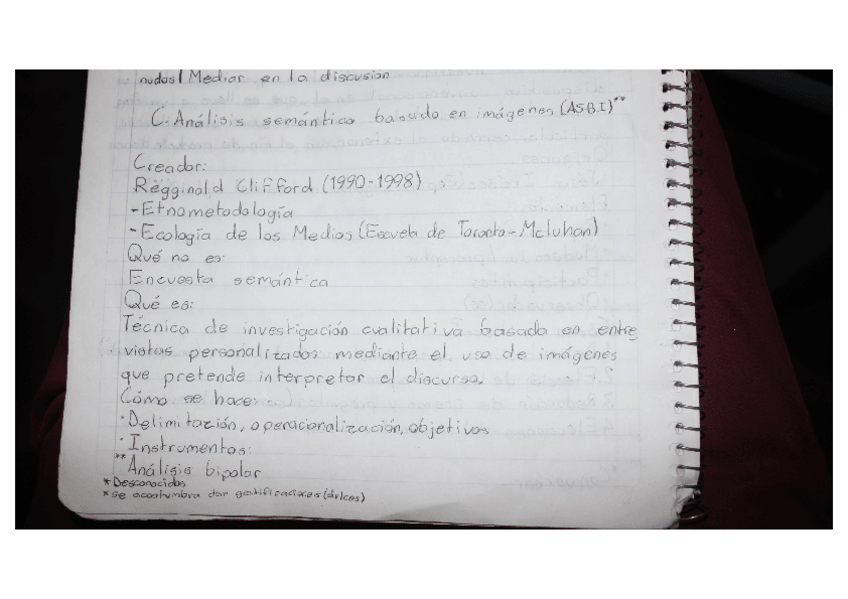 nudos/Mediar en la discusión
C. Análisis semántico basado en imágenes (ASBI)**
Creador:
Regginald Clifford (1990-1998)
-Etnometodología
-Ecología de los Medios (Escuela de Toronto-Mcluhan)
Qué no es:
Encuesta semántica
Qué es:
Técnica de investigación cualitativa basada en entre
vistas personalizadas mediante el uso de imágenes
que pretende interpretar el discurso.
Cómo se hace:
·Delimitación, operacionalización, objetivos
·Instrumentos:
**Análisis bipolar
*Desconocidos
*se acostumbra dar gratificaciones (dulces)